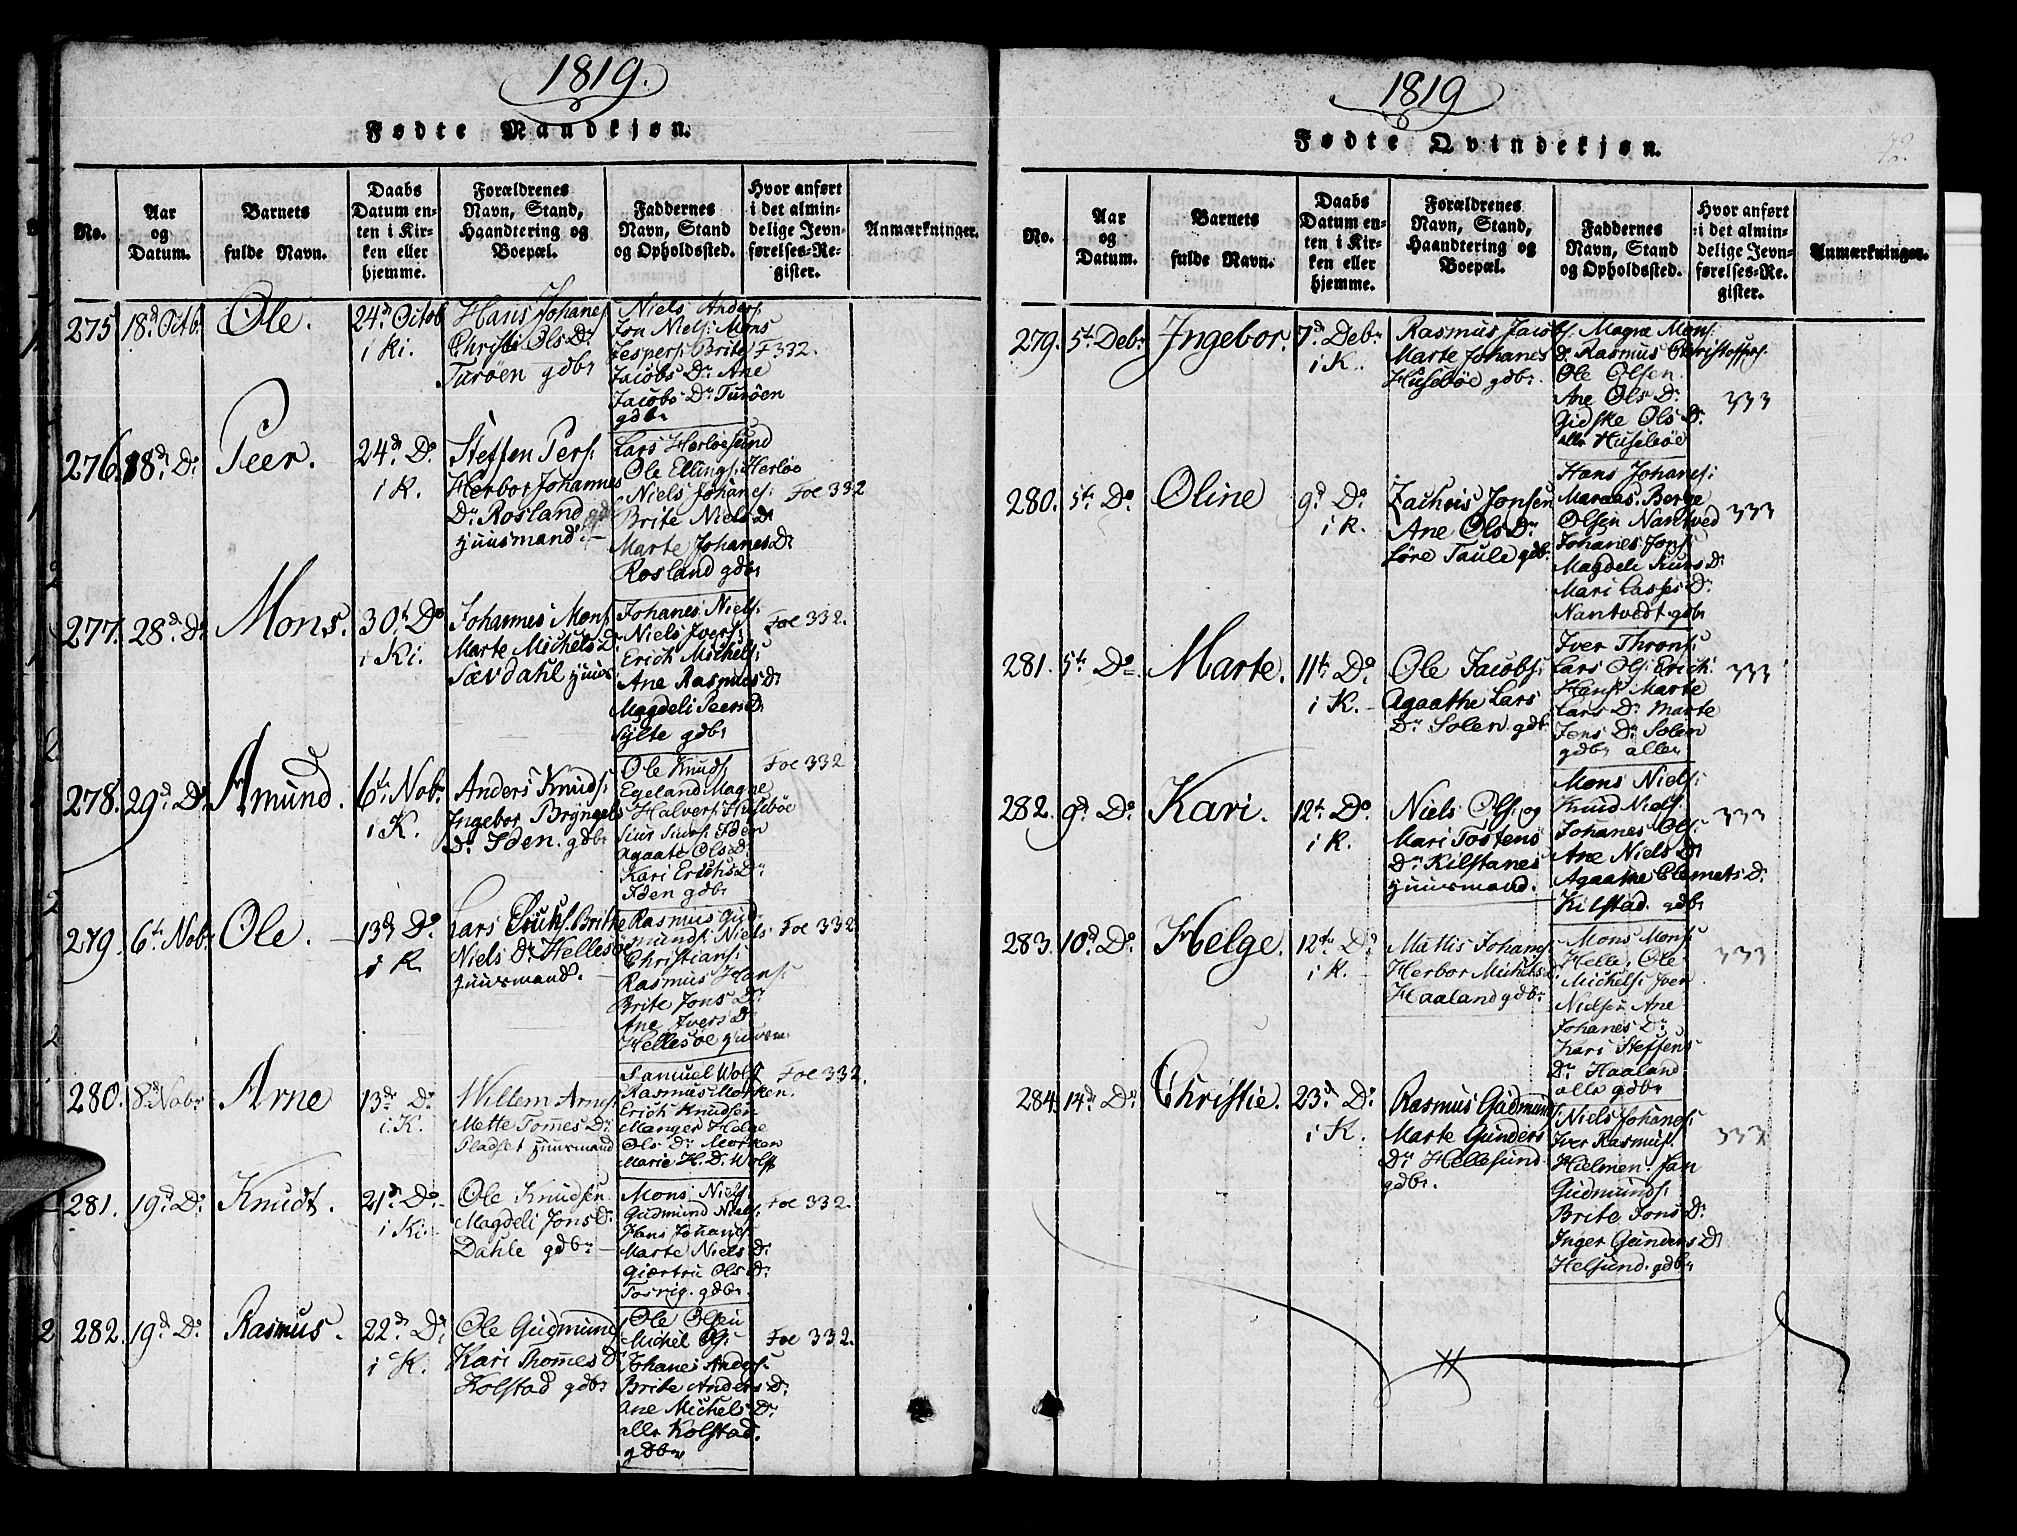 1819.
Fødte Mandkjøn.
No.
Aar
og
Datum.
Barnets
fulde Navn.
Daabs
Datum en-
ten i Kir-
ken eller
hjemme.
Forældrenes
Navn, Stand,
Haandtering og
Boepæl.
Faddernes
Navn, Stand
og Opholdssted.
Hvor anført
i det almin-
delige Jevn-
førelses-Re-
gister.
Anmærkninger.
275
18d Octbr
Ole.
24d Octob
i Ki.
Hans Johanes
Christi Ols Dr
Turøen gdbr
Niels Anders:
Jon Niels: Mons
Jespers: Brite
Jacobs Dr Ane
Jacobs Dr Turöen
gdbr
F 332.
276.
18d Do
Peer.
24d Do
i K.
Steffen Pers:
Herbor Johannes
Dr Rosland
Huusmand
Lars Herløesund
Ole Ellings: Herløe
Niels Johanes:
Brite Niels Dr
Marte Johanes Dr
Rosland gdbr
Foe 332
277.
28d Do
Mons.
30t Do
i Ki.
Johannes Mons:
Marte Michels D.
Sævdahl Huus
Johanes Niels:
Niels Ivers:
Erich Michels:
Ane Rasmus Dr
Magdeli Peers Dr
Sylte gdbr
Foe 332.
278.
29d Do
Amund.
6t Nobr.
i K.
Anders Knuds:
Ingebor Bryngels
Dr Iden. gdbr
Ole Knuds:
Egeland Magne
Halvers: Husebøe
Siur Siurs: Iden
Agaate Ols Dr
Kari Erichs Dr
Iden gdbr
Foe 332
279.
6t Nobr
Ole.
13d Do
i K
Lars Erichs: Brithe
Niels Dr Hellesøe
Huusmand.
Rasmus Gud-
munds: Niels
Christians:
Rasmus Hans:
Brite Jons Dr
Ane Ivers Dr
Hellesøe Huusm
Foe 332
280.
8d Nobr
Arne
13de Do
i K.
Willem Arnes:
Mette Tomes Dr
Pladset Huusmand
Samuel Wolff
Rasmus Morken.
Erich Knudsen
Manger Helge
Ols Dr Morken
Marie H. D. Wolff
Foe 332.
281.
19d Do
Knudt.
21d Do
i Ki.
Ole Knudsen
Magdeli Jons Dr
Dahle gdbr
Mons Niels:
Gudmund Niels:
Hans Johanes:
Marte Niels Dr
Giærtru Ols Dr
Tosrig. gdbr
Foe 332.
282.
19d Do
Rasmus.
22de Do
i K.
Ole Gudmunds
Kari Thomes Dr
Kolstad gdbr
Ole Olsen
Michel Ols:
Johanes Anders:
Brite Anders Dr
Ane Michels Dr
alle Kolstad.
gdbr
Foe 332.
1819
Fødte Qvindekjøn.
No.
Aar
og
Datum.
Barnets
fulde Navn.
Daabs
Datum en-
ten i Kir-
ken eller
hjemme.
Forældrenes
Navn, Stand,
Haandtering og
Boepæl.
Faddernes
Navn, Stand
og Opholdssted.
Hvor anført
i det almin-
delige Jevn-
førelses-Re-
gister.
Anmærkninger.
279.
5t Debr
Ingebor.
7d Debr
i K.
Rasmus Jacobs:
Marte Johanes Dr
Husebøe gdbr.
Magne Mons:
Rasmus Christoffers:
Ole Olsen.
Ane Ols Dr
Gidske Ols Dr
alle Husebøe
333
280.
5t Do
Oline
9d Do
i K.
Zacheis Jonsen
Ane Ols Dr
Løre Taule gdb.
Hans Johanes:
Maraas. Berge
Olsen Nantved
Johanes Jons:
Magdeli Knus Dr
Mari Lasses Dr
Nantvedt gdbr
333
281.
5t Do
Marte.
11t Do
i K.
Ole Jacobs:
Agaathe Lars
Dr Solen. gdb.
Iver Throns:
Lars Ols: Erich
Hans: Marte
Lars Dr Marte
Jens Dr Solen
gdbr alle
333
282.
9d Do
Kari.
12t Do
i K.
Niels Ols: og
Mari Tostens
Dr Kilstanes
Huusmand.
Mons Niels:
Knud Niels:
Johanes Ols:
Ane Niels Dr
Agaathe Clemets D.
Kilstad. gdbr
333
283.
10d Do
Helge.
12te Do
i K.
Mattis Johanes:
Herbor Michels D.
Haaland gdbr
Mons Mons:
Helle: Ole
Michels: Iver
Nielsen Ane
Johanes Dr
Kari Steffens
Dr Haaland
alle gdbr
333
284.
14de Do
Christie.
23d Do
i K.
Rasmus Gudmunds:
Marte Gunders
Dr Hellesund
gdbr.
Niels Johanes:
Iver Rasmus:
Hielmen. Jan
Gudmunds:
Brite Jons Dr
Inger Gunders Dr
Helsund. gdbr
333